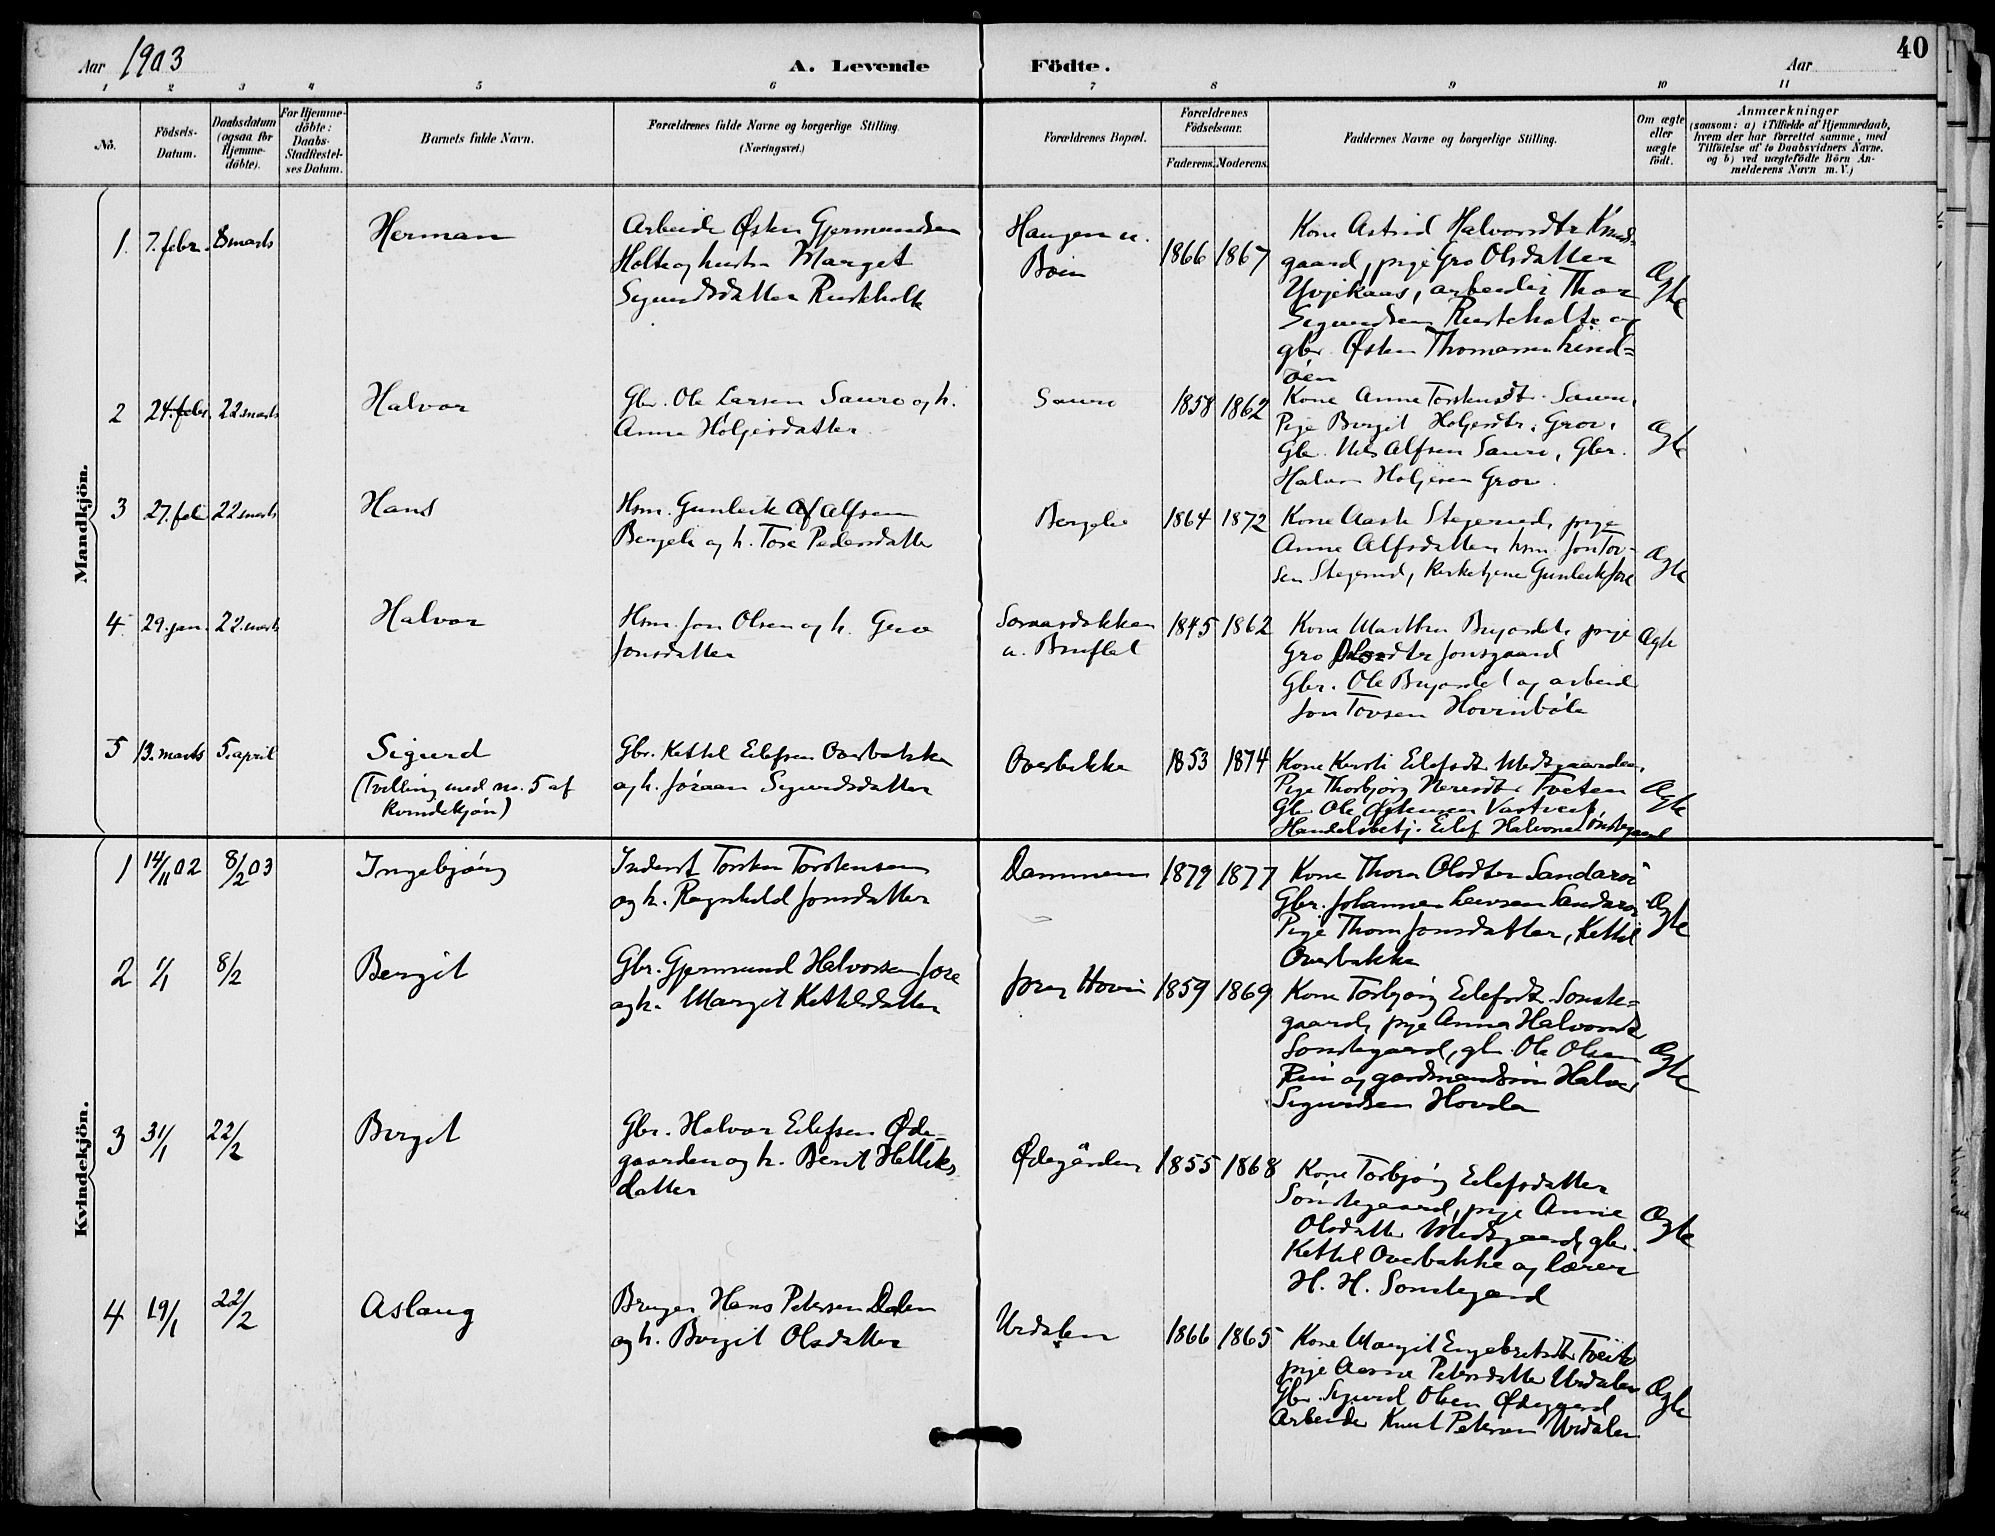 40
Aar 1903 A. Levende Födte. Aar
1 2 3 4 5 6 7 8 9 10 11
No.
Födsels-
Datum.
Daabsdatum
(ogsaa for
Hjemme-
döbte).
For Hjemme-
döbte:
Daabs-
Stadfæstel-
ses Datum.
Barnets fulde Navn.
Forældrenes fulde Navne og borgerlige Stilling
(Næringsvei.)
Forældrenes Bopæl.
Forældrenes
Födselsaar.
Faderens. Moderens.
Faddernes Navne og borgerlige Stilling.
Om ægte
eller
uægte
födt.
Anmærkninger
(saasom: a) i Tilfælde af Hjemmedaab,
hvem der har forrettet samme, med
Tilföielse af to Daabsvidners Navne.
og b) ved uægtefödte Börn An-
melderens Navn m. V.)
Mandkjön.
1. 7. febr. 8 marts
Herman
Arbeider Østen Gjermundsen
Holte og hustru Marget
Sigurdsdatter Rustholte
Haugen u.
Böen
1866 1867
Kone Astrid Halvorsdtr
gaard, pige Gro Olsdatter
arbeider Thor
Sigurdsen Rusteholte og
gbr. Østen Thomassen
öen
Ægte
2 24. febr. 22 marts
Halvor
Gbr. Ole Larsen Sauro og h.
Anne Holjesdatter.
Sauro
1858 1862
Kone Anne Torstensdt. Sauro,
Pige Birgit Holjesdtr. Grov,
Gbr. Nils Alfsen Sauro, Gbr.
Halvor Holjesen Grov.
Ægte
3 27. feb 22 marts
Hans
Hsm. Gunleik Alfsen
Bergeli og h. Tore Pedersdatter
Bergeli
1864 1872
Kone Aaste Stegerud, pige
Anne Alfsdatter, hsm. Jon Tov-
sen Stegerud, kirketjener Gunleik Jore
Ægte
4 29. jan. 22. marts
Halvor
Hsm. Jon Olsen og h. Guro
Jonsdatter
u. Bruflat
1845 1862
Kone Marthe pige
Gro Jonsgaard
Gbr. Ole og arbeid
Jon Tovsen Hovinböle
Ægte
5 13. marts 5. april
Sigurd
(Tvilling med no. 5 af
kvindekjön)
Gbr. Kettil Eilefsen Overbakke
og h. Jöraan Sigurdsdatter
Overbakke
1853 1874
Kone Kersti Eilefsdtr Midtgaarden,
Pige Thorbjörg Tveiten
Gbr. Ole Østensen
Handelsbetj. Eilef Halvorsen Sönstegaard
Ægte
Kvindekjön.
1 14/11 02 8/2 03
Ingebjörg
Inderst Torsten Torstensen
og h. Ragnhild Jonsdatter
Dammen
1879 1877
Kone Thora Olsdtr Sandaroi
Gbr. Johannes Levorsen Sandaroi
Pige Thora Jonsdatter, Kettil
Overbakke
Ægte
2 1/1 8/2
Bergit
Gbr. Gjermund Halvorsen Jore
og h. Margit Kettilsdatter
Jore, Hovin
1859 1869
Kone Torbjörg Eilefsdt. Sönste-
gaard, pige Anna Halvorsdt
Sönstegaard, gbr. Ole Olsen
Rui og gaardmandssön Halvor
Sigurdsen Hovde
Ægte
3 31/1 22/2
Birgit
Gbr. Halvor Eilefsen Øde-
gaarden og h. Berit Helleks
datter
Ødegården
1855 1868
Kone Torbjörg Eilefsdatter
Sönstegaard, pige Anne
Olsdatter Midtgaard, gbr.
Kettil Overbakke og lærer
H. H. Sönstegaard
Ægte
4 19/1 22/2
Aslaug
Bruger Hans Petersen Dalen
og h. Birgit Olsdatter
Urdalen
1866 1865
Kone Margit Engebretsdtr Tveito
pige Aasne Petersdatter Urdalen
Gbr. Sigurd Olsen Ødegaard
Arbeider Knut Petersen Urdalen
Ægte